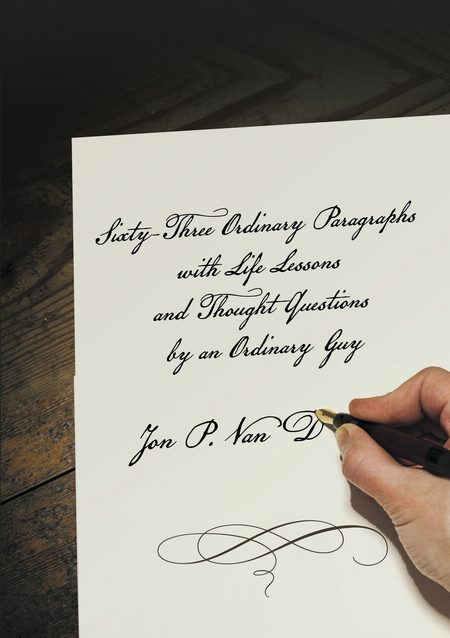 Sixty-Three Ordinary Paragraphs
with Life Lessons
and Thought Questions
by an Ordinary Guy
Jon P. Van D